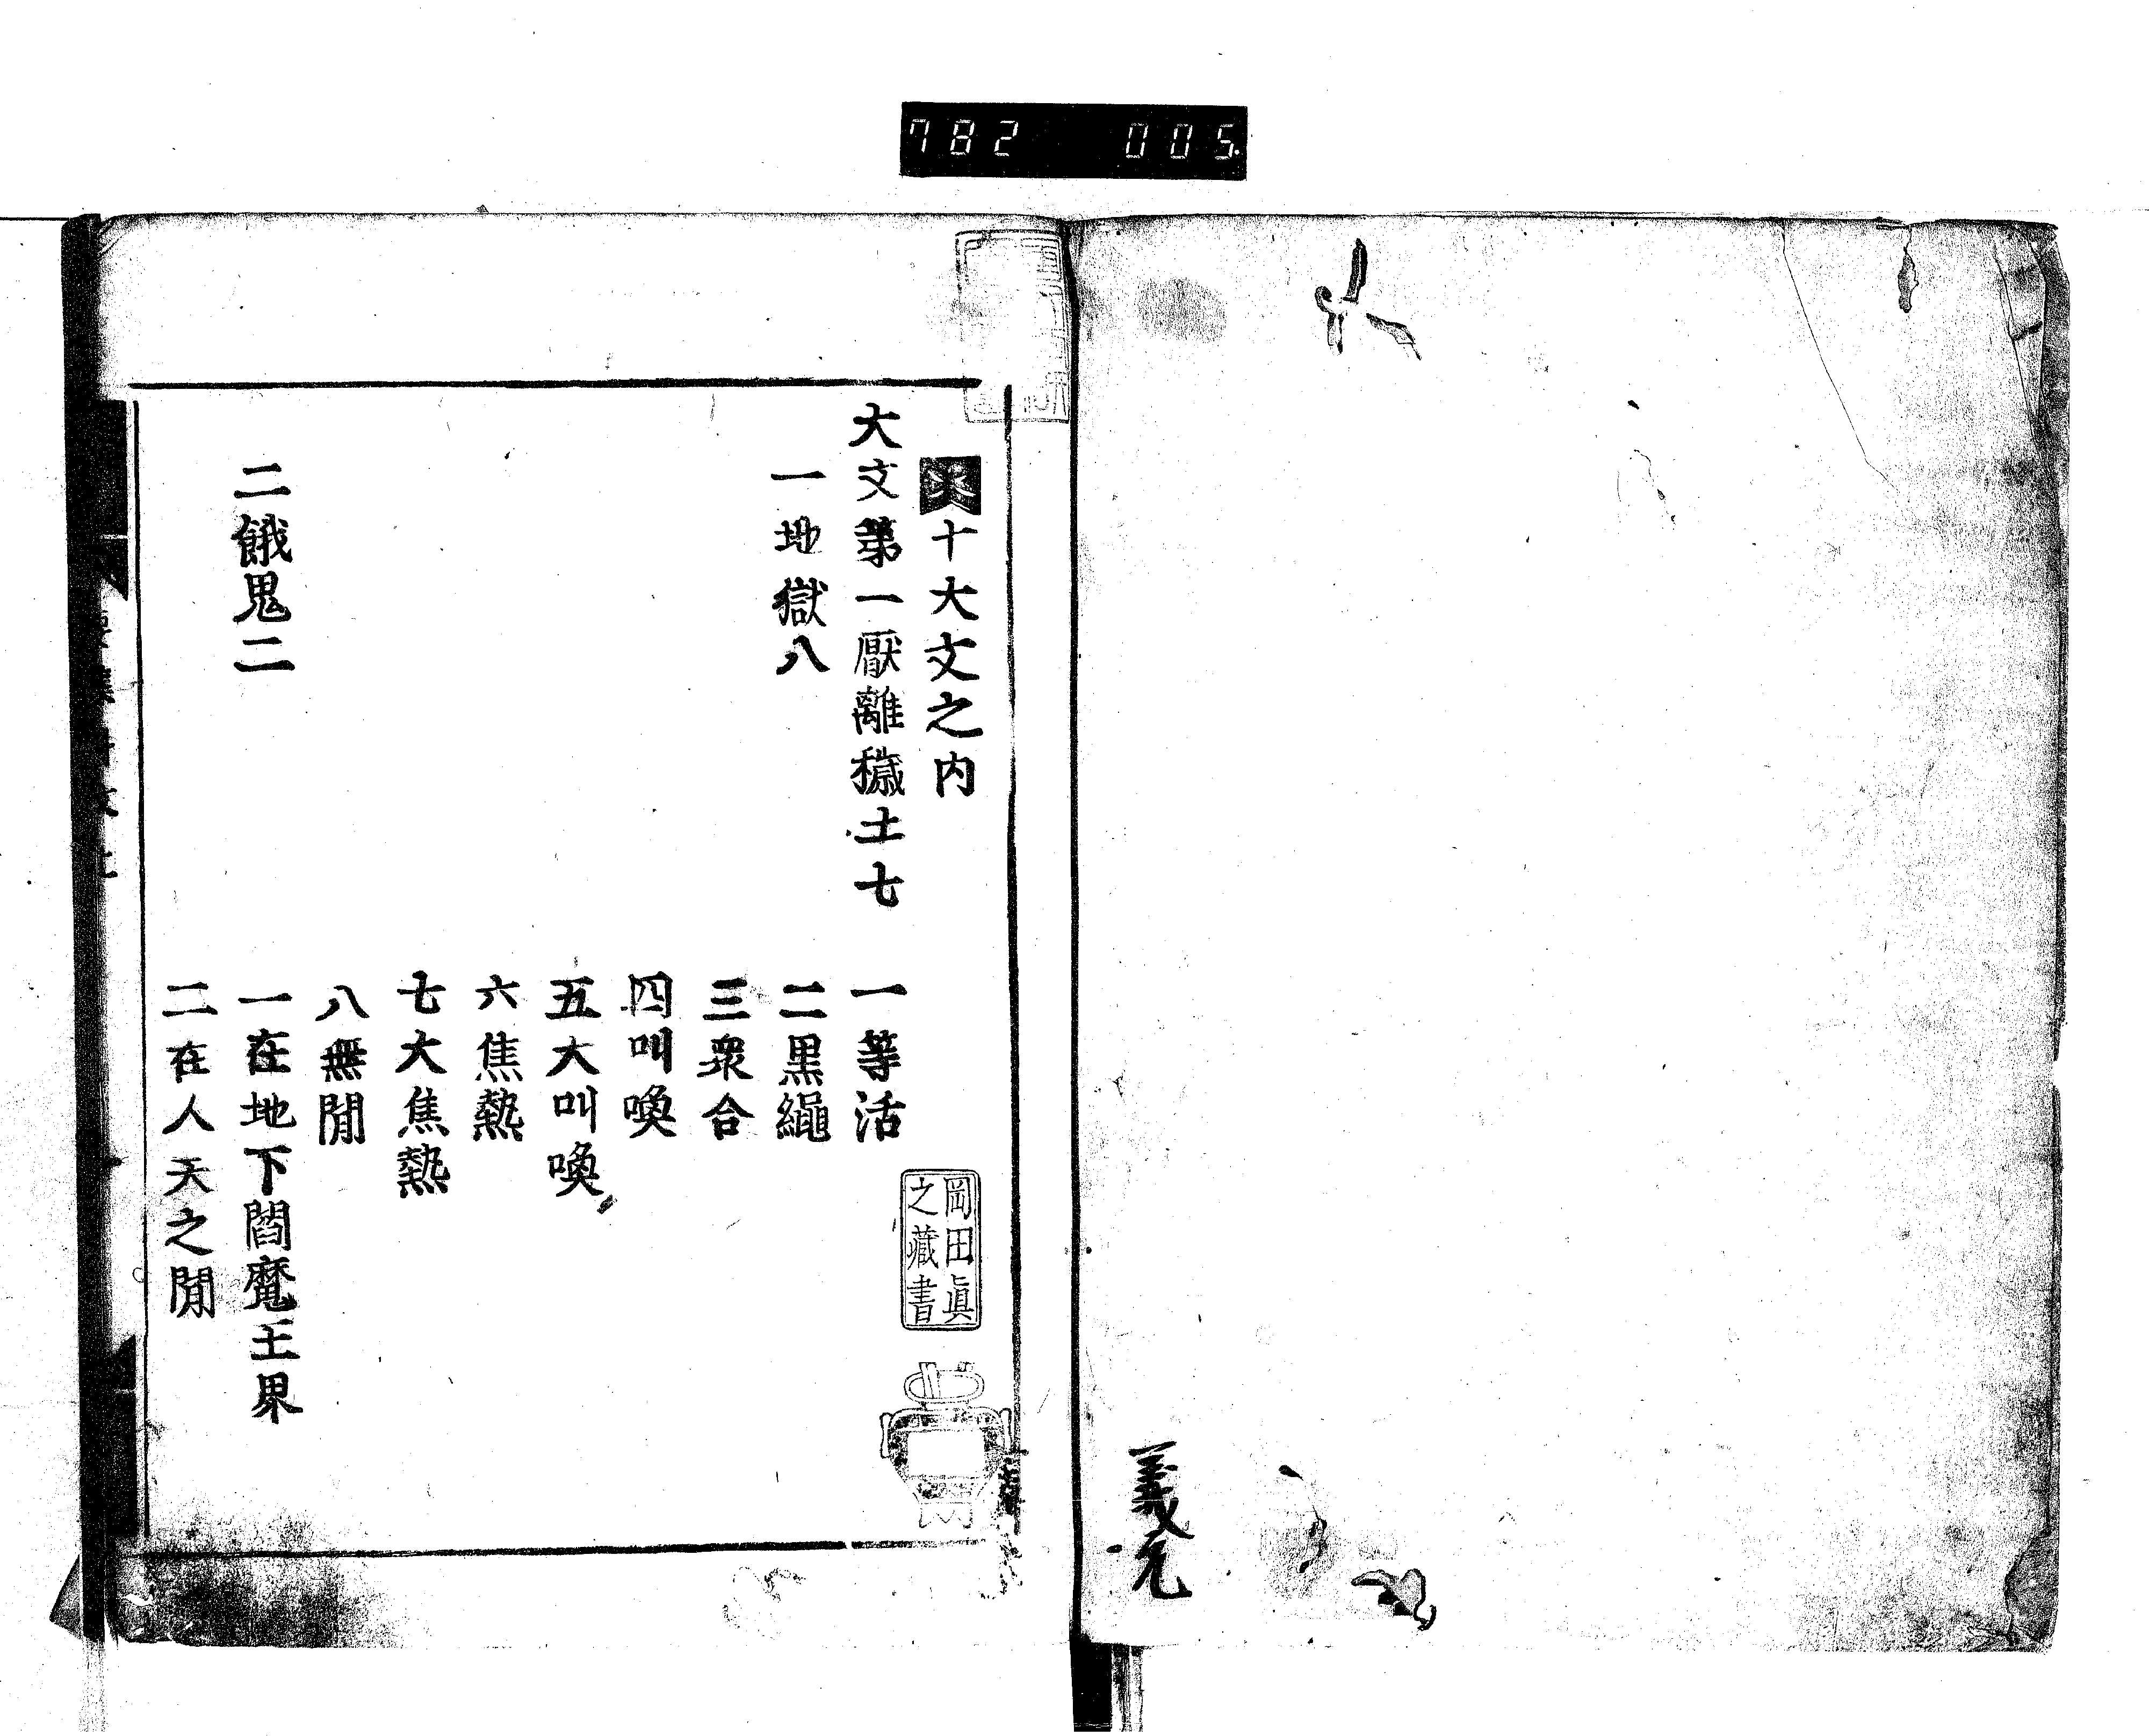 782 005
義允
十大文之内
大文第一厭離穢土七
一地獄八
一等活
二黒繩
三衆合
四叫喚
五大叫喚
六焦熱
七大焦熱
八無間
二餓鬼二
一在地下閻魔王界
二在人天之間
岡田眞
之藏書